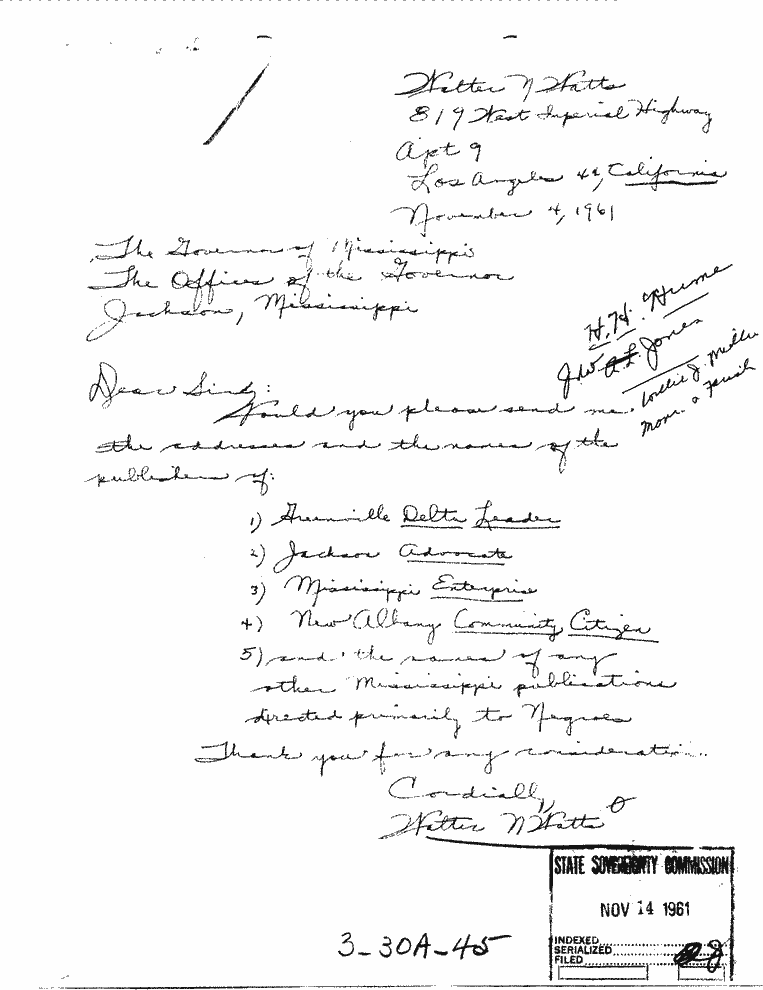 Walter N Watts
819 West Imperial Highway
Apt 9
Los Angeles 44, California
November 4, 1961
The Governor of Mississippi
The Offices of the Governor
Jackson, Mississippi
H.H. Hume
J.W. A.L. Jones
J. Miller
Mom. &
Dear Sir:
Would you please send me
the addresses and the names of the
publishers of:
1) Greenville Delta Leader
2) Jackson Advocate
3) Mississippi Enterprise
4) New Albany Community Citizen
5) and the names of any
other Mississippi publications
directed primarily to Negroes
Thank you for any consideration.
Cordially,
Walter N Watts
STATE SOVEREIGNTY COMMISSION
NOV 14 1961
INDEXED
SERIALIZED
FILED
3-30A-45